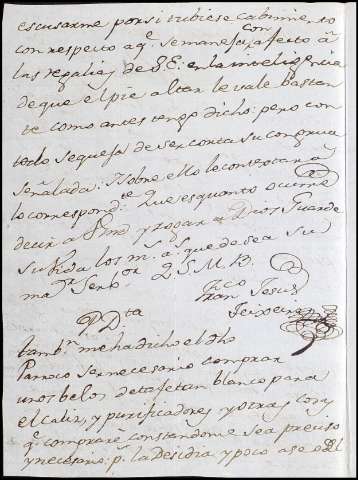 escusarme por si tubiese cabimiento
con respecto a q.e se manejaza afecto â
las regalias de S.E: en la inteligencia
de que el pie altar le vale bastan
te como antes tengo dicho: pero con
todo se queja de ser corta su congrua
señalada: Sobre ello le contextar a
lo correspond.te Que es quanto ocurre
decir a Vmd y rogar a Dios Guarde
su bida los m.s a.s que desea su
ma.r Serb.or Q.S.M.B.
Fran.co Jesus
Teixeira
P.D.ta
tamb.n me ha dicho el dho
Parroco ser necesario comprar
unos belos de tafetan blanco para
el caliz, y purificadores y otras cosas
q.e comprarè constandome sea preciso
y necesario: p.r la Desidia y poco aseo del